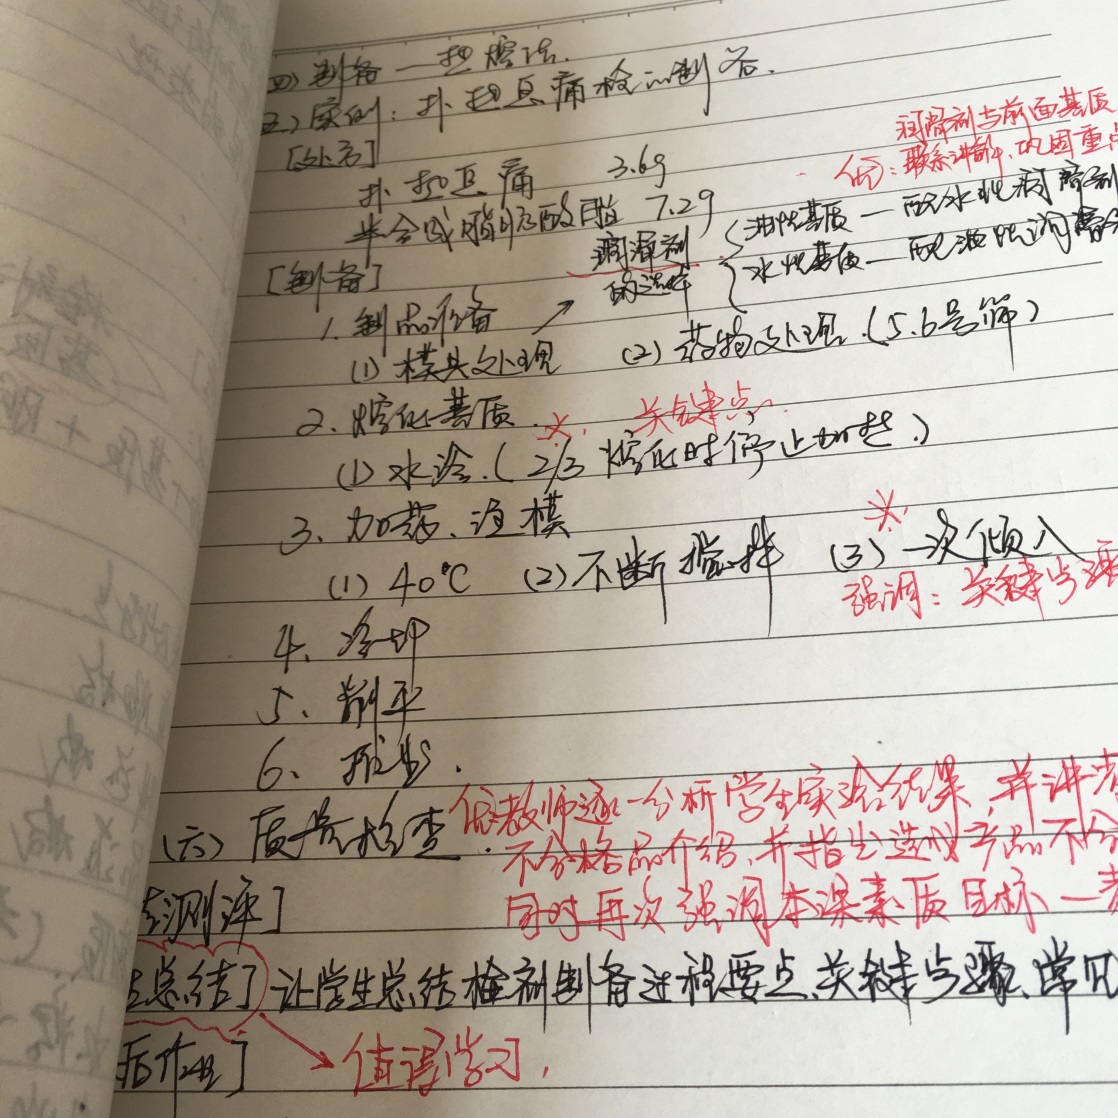 四)制备—热熔法.
五)实例:扑热息痛栓的制备.
[处方]
扑热息痛 3.6g
半合成脂肪酸酯 7.2g
润滑剂与前面基质
优:联系讲解,巩固重点
润滑剂的选择
油性基质—配水性润滑剂
水性基质—配油性润滑剂
[制备]
1.制品准备
(1)模具处理 (2)药物处理.(5.6号筛)
2.熔化基质. ※. 关键点
(1)水浴.(2/3熔化时停止加热.)
3.加药、注模 ※.
(1)40℃ (2)不断搅拌 (3)一次倾入
强调:关键步骤
4、冷却
5、削平
6、推出.
(六)质量检查.
优:教师逐一分析学生实验结果,并讲
不合格品介绍,并指出造成产品不合
同时再次强调本课素质目标—
测评]
总结]让学生总结栓剂制备过程要点、关键步骤、常见
后作业] 值得学习,